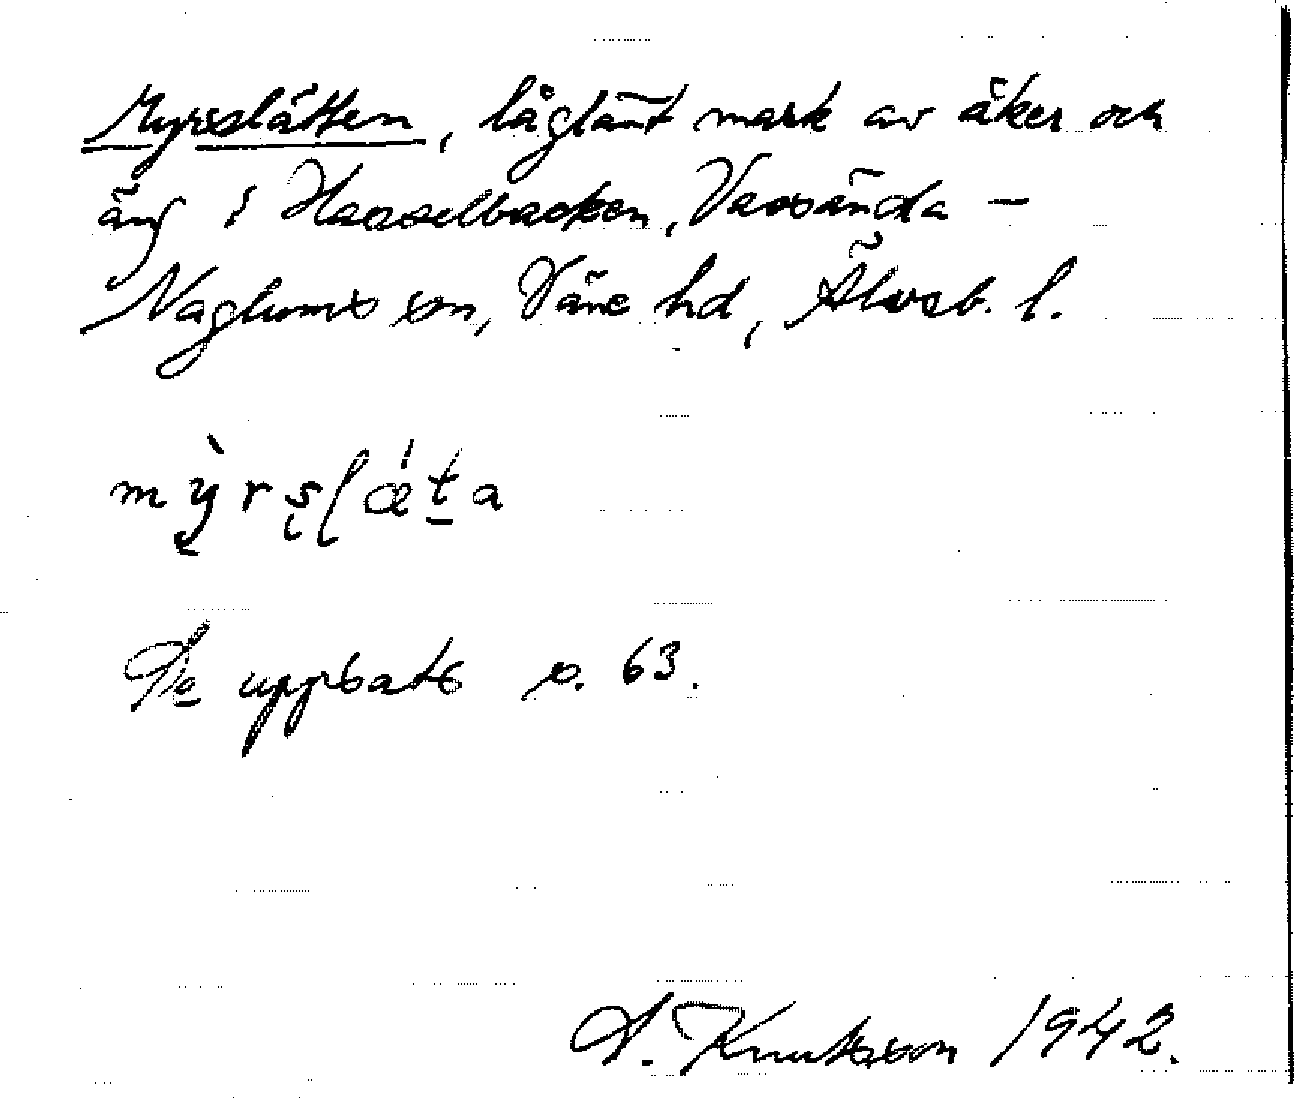 Myrslätten, låglänt mark av åker och
äng i Hasselbacken, Vassända –
Naglums sn, Väne hd, Älvsb. l.
mỳ̨rşlǽt̲a
Se uppsats s. 63.
A. Knutsson 1942.